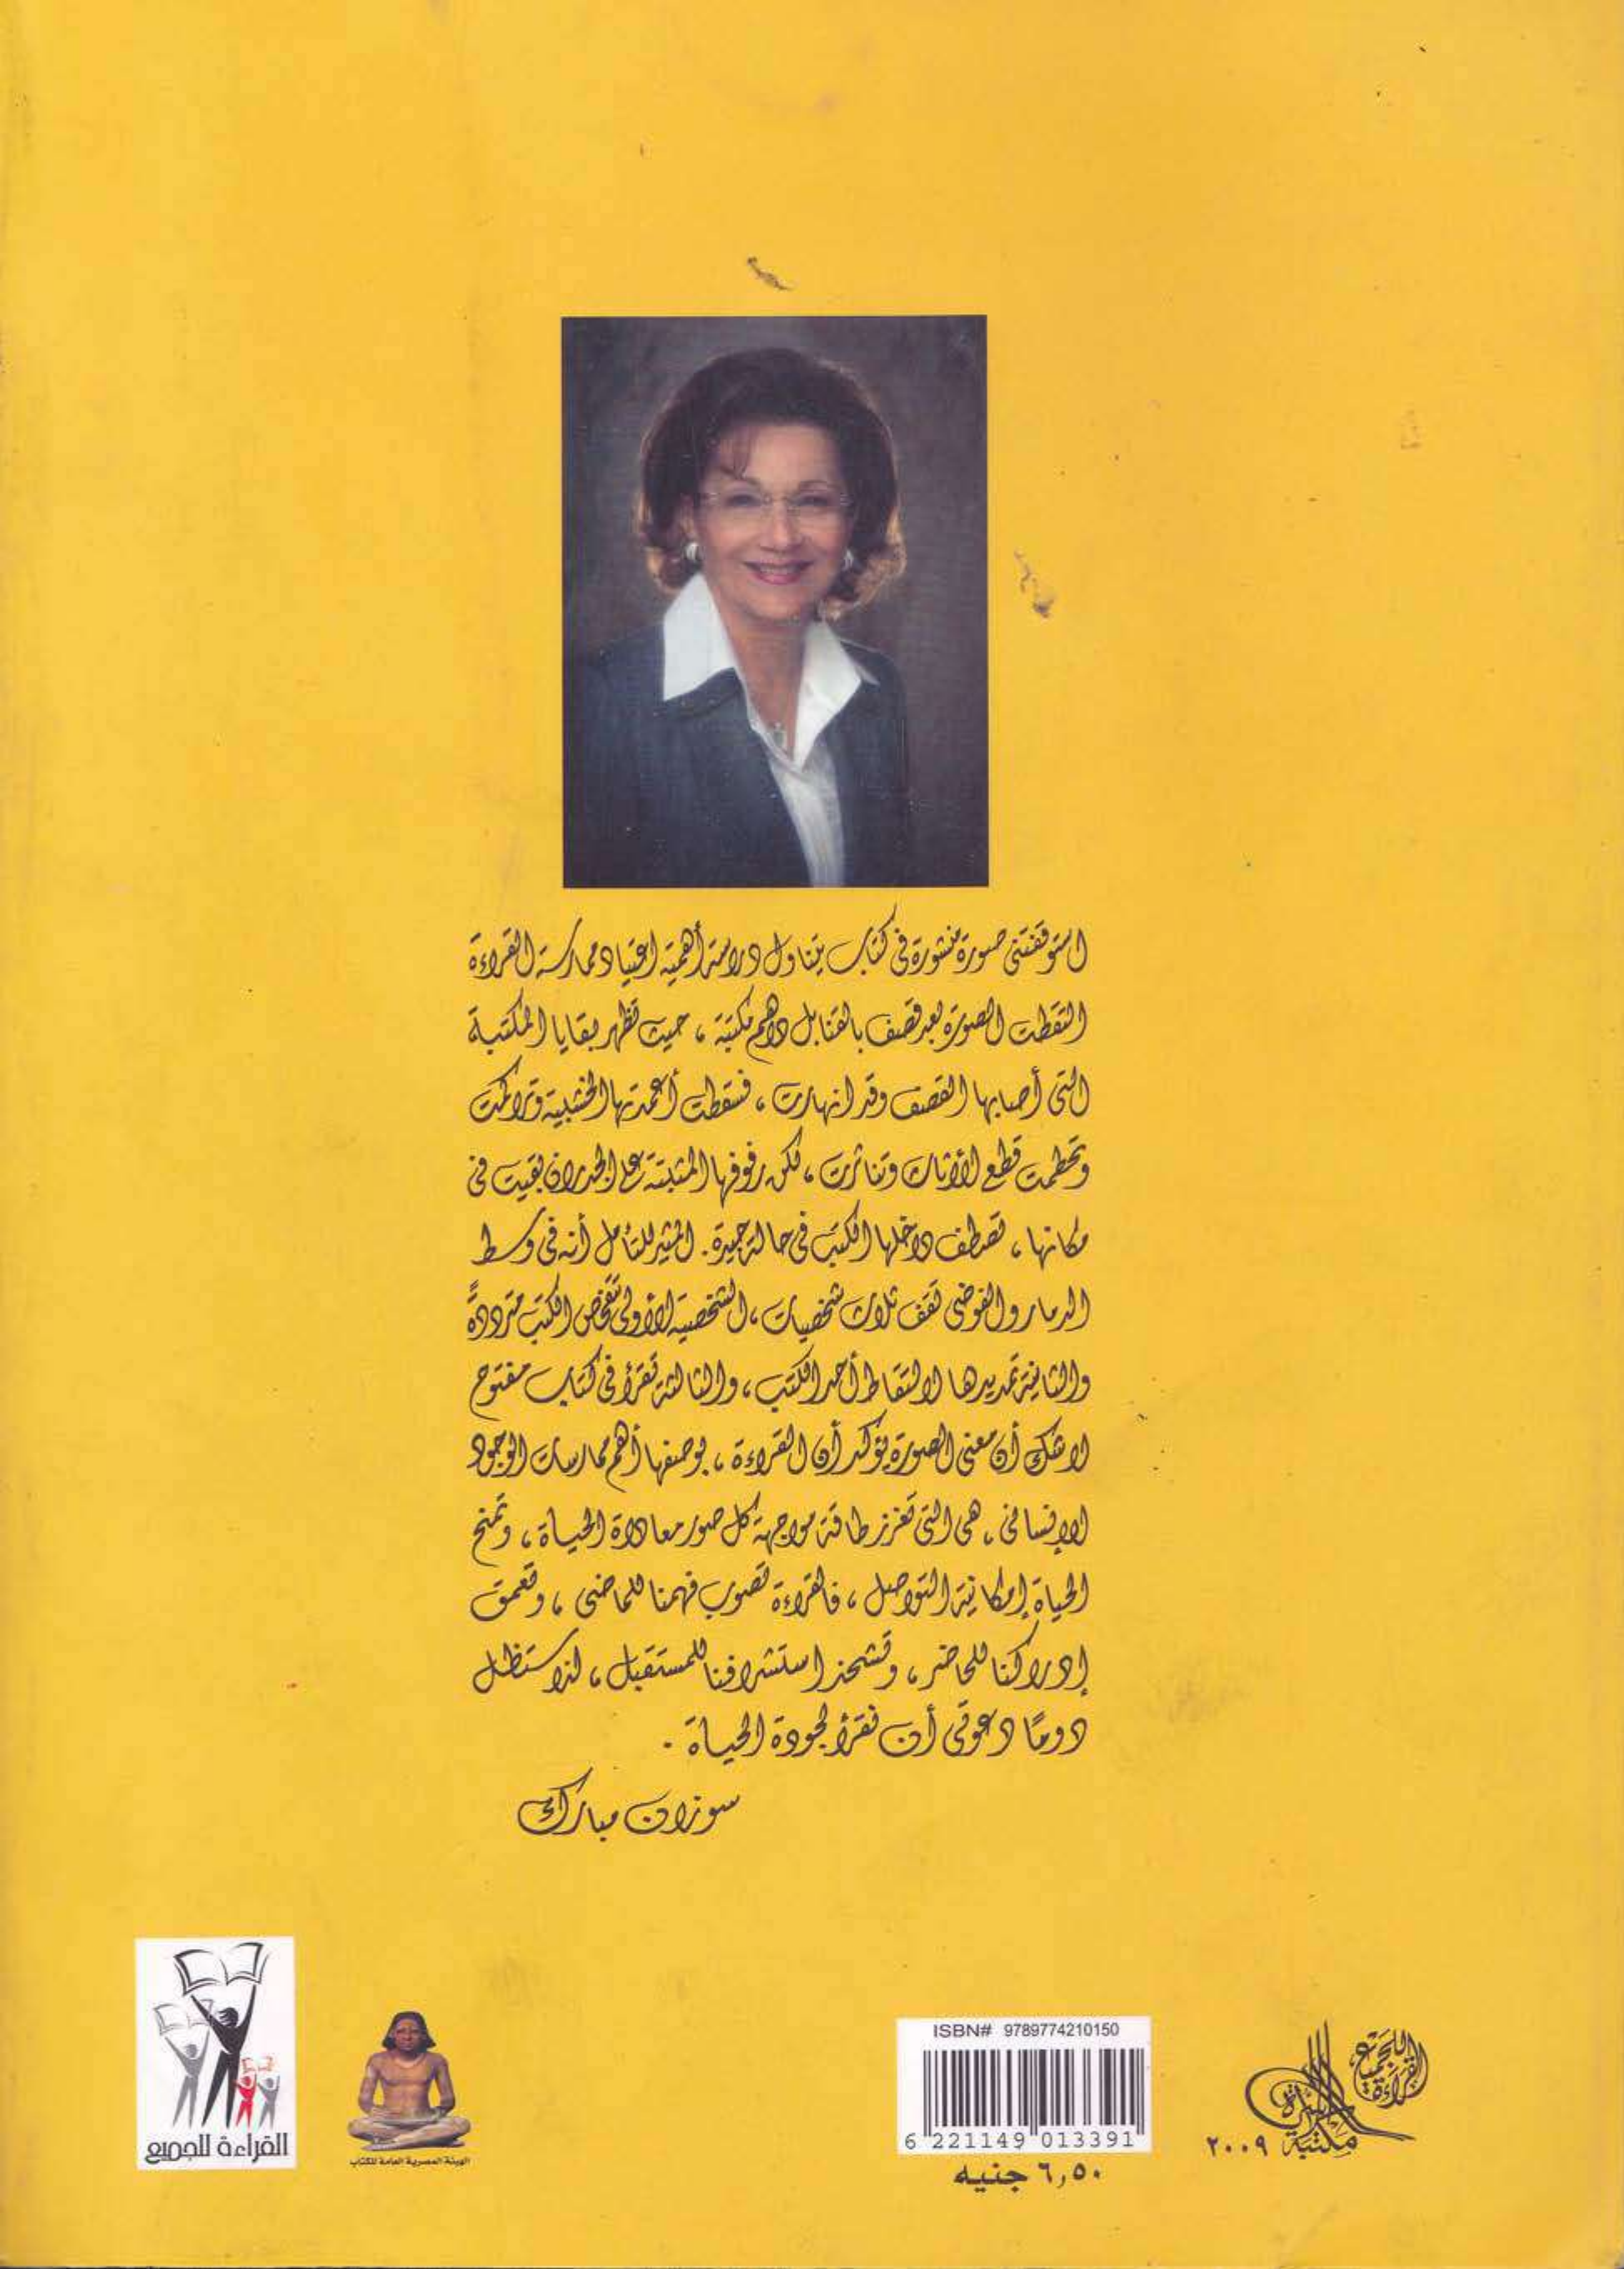 استوقفتنى صورة منشورة فى كتاب يتناول دراسة أهمية اعتياد ممارسة القراءة
التقطت الصورة بعد قصف بالقنابل داهم مكتبة، حيث تظهر بقايا المكتبة
التى أصابها القصف وقد انهارت، فسقطت أعمدتها الخشبية وتراكمت
وتحطمت قطع الأثاث وتناثرت، لكن رفوفها المثبتة على الجدران بقيت فى
مكانها، تصطف داخلها الكتب فى حالة جيدة. المثير للتأمل أنه فى وسط
الدمار والفوضى تقف ثلاث شخصيات، الشخصية الأولى تتفحص الكتب مترددةً
والثانية تمد يدها لالتقاط أحد الكتب، والثالثة تقرأ فى كتاب مفتوح
لاشك أن معنى الصورة يؤكد أن القراءة، بوصفها أهم ممارسات الوجود
الإنسانى، هى التى تعزز طاقة مواجهة كل صور معاداة الحياة، وتمنح
الحياة إمكانية التواصل، فالقراءة تصوب فهمنا للماضى، وتعمق
إدراكنا للحاضر، وتشحذ استشرافنا للمستقبل، لذا ستظل
دومًا دعوتى أن نقرأ لجودة الحياة.
سوزان مبارك
القراءة للجميع
الهيئة المصرية العامة للكتاب
ISBN# 9789774210150
6 221149 013391
٦,٥٠ جنيه
القراءة للجميع
مكتبة الأسرة
٢٠٠٩